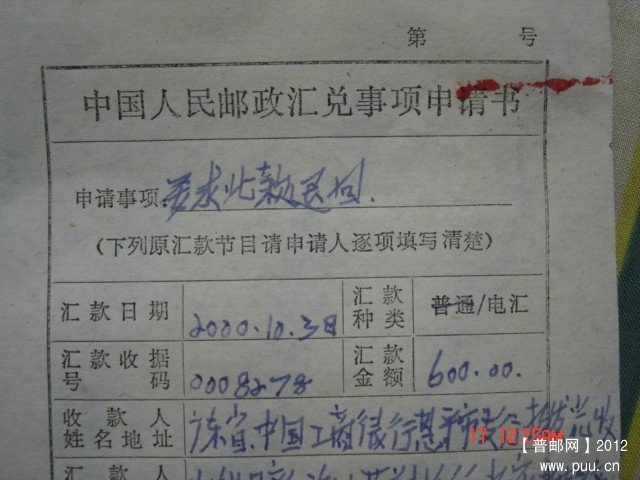 第 号
中国人民邮政汇兑事项申请书
申请事项:要求此款退回.
(下列原汇款节目请申请人逐项填写清楚)
汇款日期 2000.10.3日 汇款种类 普通/电汇
汇款收据号码 0008278 汇款金额 600.00.
收款人姓名地址 广东省.中国工商银行 收
汇款人
【普邮网】2012
www.puu.cn